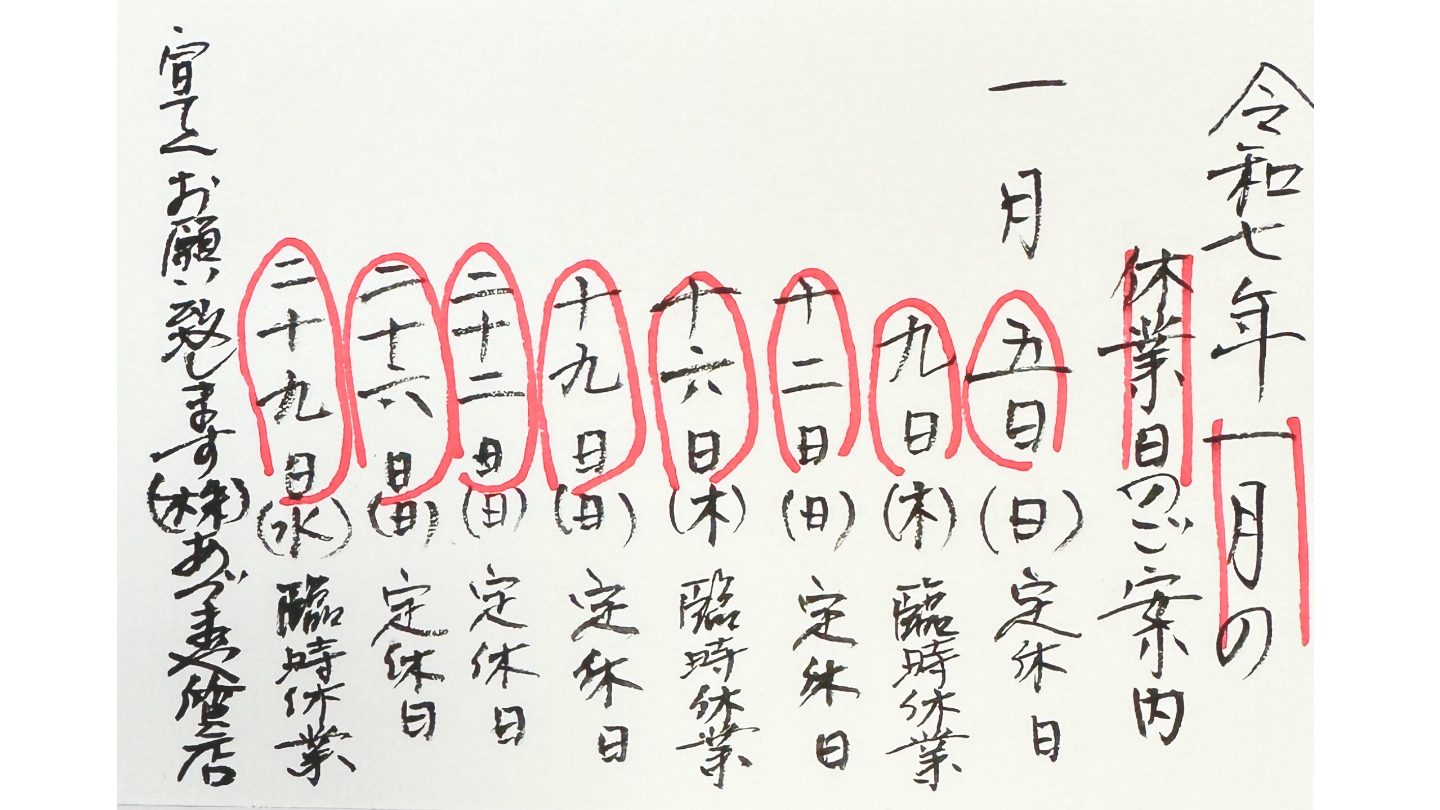 令和七年一月の
休業日のご案内
一月五日(日)定休日
九日(木)臨時休業
十二日(日)定休日
十六日(木)臨時休業
十九日(日)定休日
二十二日(日)定休日
二十六日(日)定休日
二十九日(水)臨時休業
宜しくお願い致します(株)あづま質店